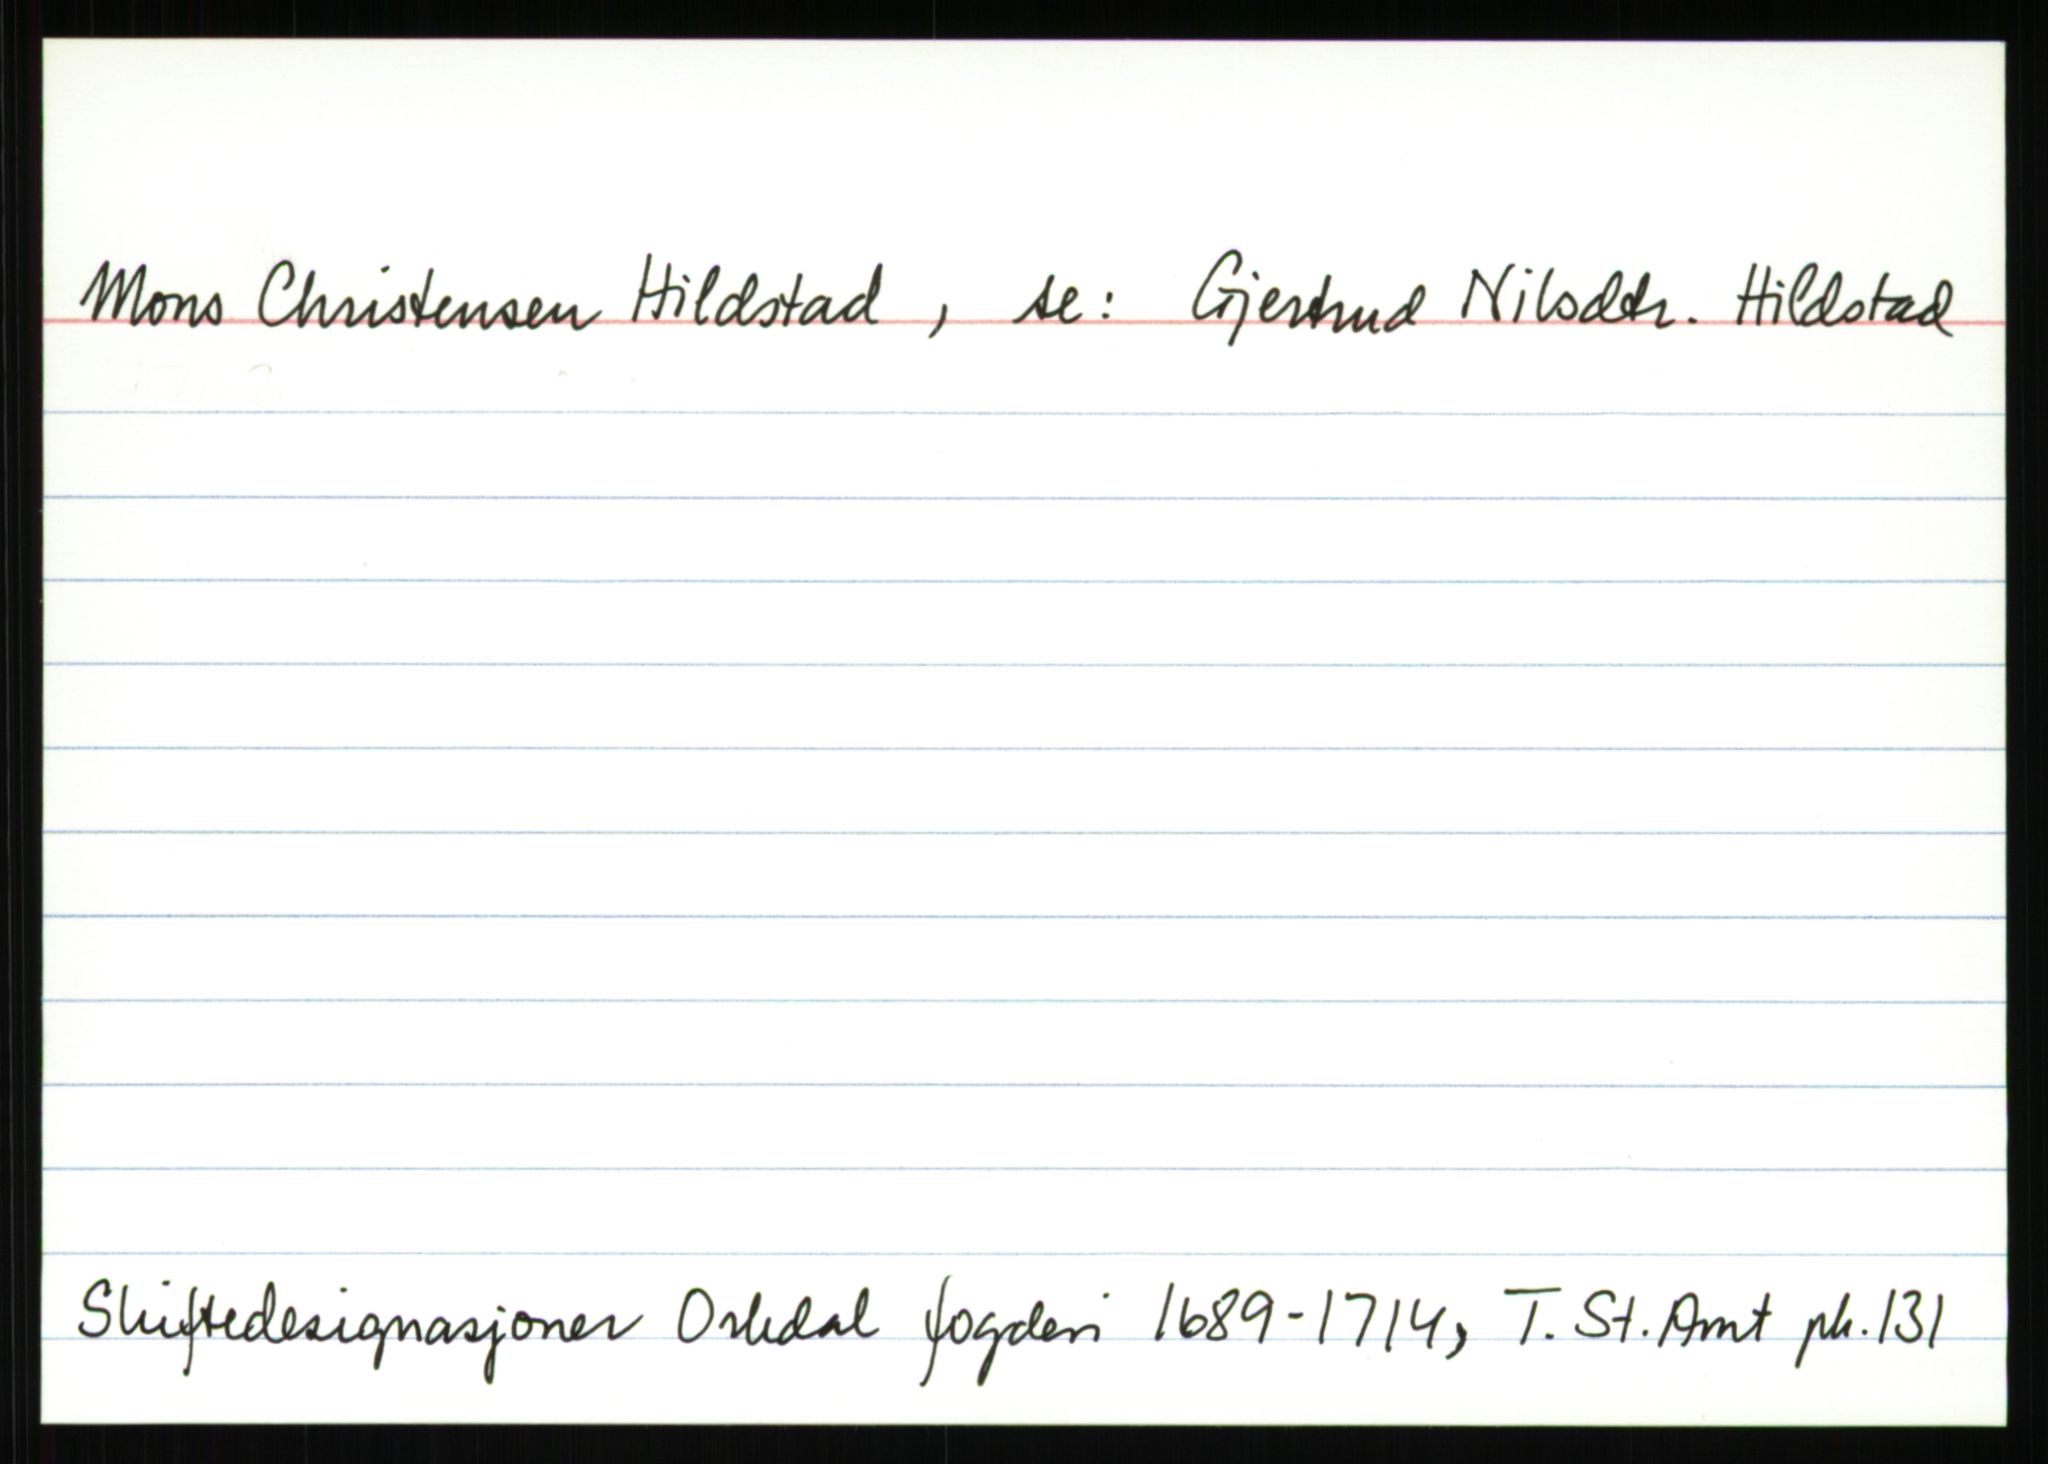 Mons Christensen Hildstad, se: Gjertrud Nilsdtr. Hildstad
Skiftedesignasjoner Orkdal fogderi 1689-1714, T. St. Amt pk. 131